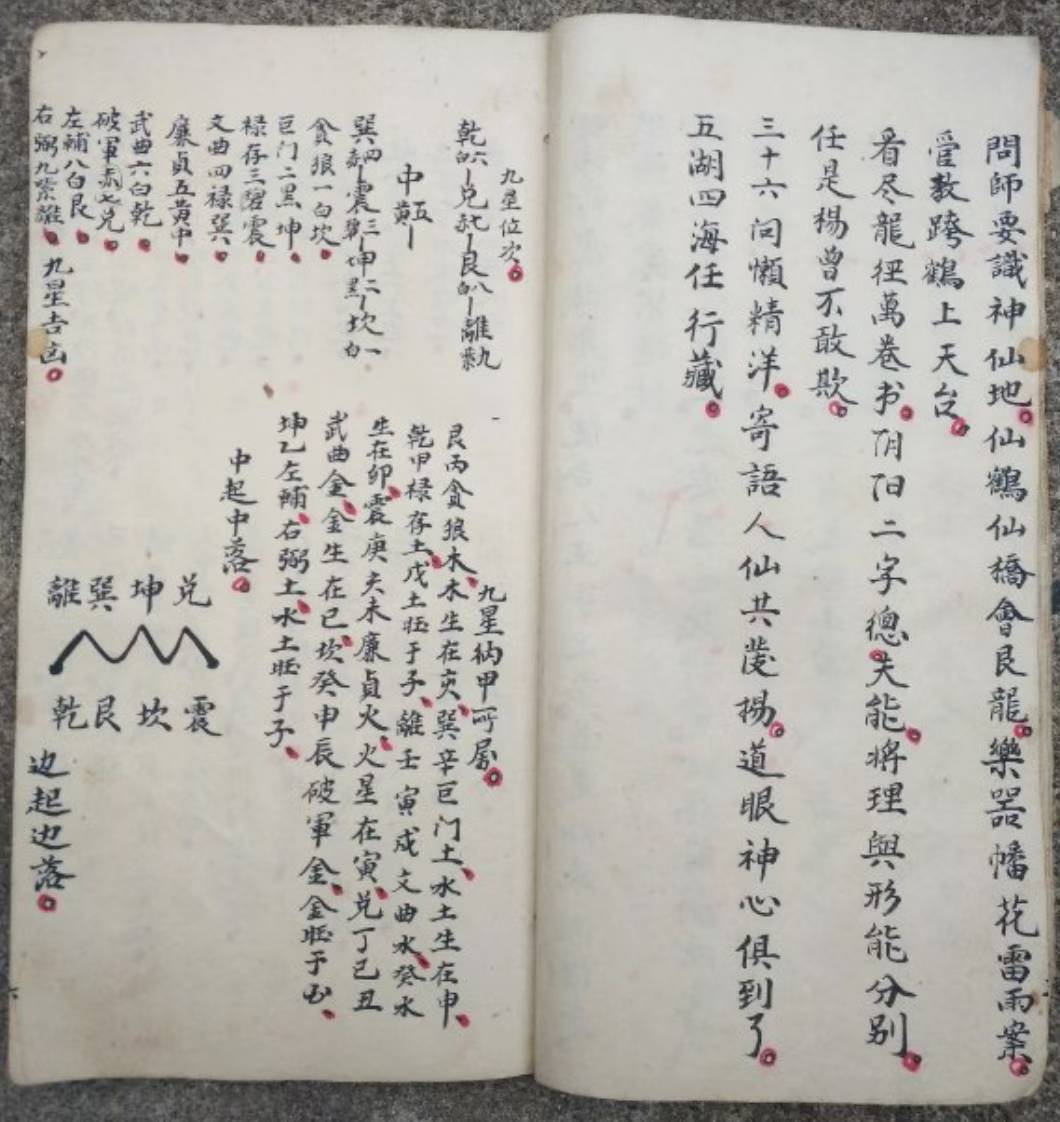 問師要識神仙地仙鶴仙橋會艮龍樂器幡花雷雨案
管教跨鶴上天台
看尽龍徑萬卷书阴阳二字總夫能将理與形能分别
任是楊曾不敢欺
三十六问懶精洋寄語人仙共發揚道眼神心俱到了
五湖四海任行藏
九星位次
乾六白兑七赤艮八白離九紫
中五黄
巽四綠震三碧坤二黑坎一白
貪狼一白坎
巨门二黑坤
禄存三碧震
文曲四禄巽
廉貞五黄中
武曲六白乾
破軍赤七兑
左輔八白艮
右弼九紫離
九星吉凶
九星納甲所屬
艮丙貪狼木木生在亥巽辛巨门土水土生在申
乾甲禄存土戊土旺于子離壬寅戌文曲水癸水
生在卯震庚亥未廉貞火火星在寅兑丁己丑
武曲金金生在巳坎癸申辰破軍金金旺于
坤乙左輔右弼土水土旺于子
中起中落
兑坤巽離
震坎艮乾
边起边落